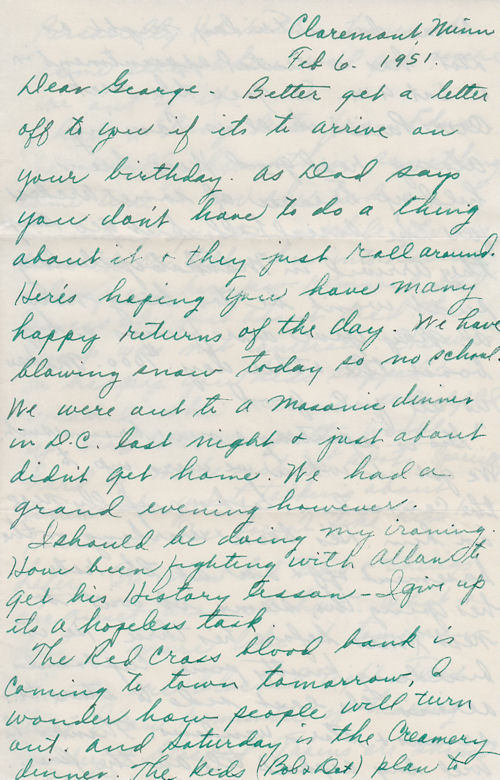 Claremont, Minn
Feb 6. 1951.
Dear George - Better get a letter
off to you if its to arrive on
your birthday. As Dad says
you don't have to do a thing
about it & they just roll around.
Here's hoping you have many
happy returns of the day. We have
blowing snow today so no school.
We were out to a Masonic dinner
in D.C. last night & just about
didn't get home. We had a
grand evening however.
I should be doing my ironing.
Have been fighting with Allan to
get his History lesson - I give up
its a hopeless task.
The Red Cross blood bank is
coming to town tomorrow, I
wonder how people will turn
out. And Saturday is the Creamery
dinner. The kids (Bob & Dot) plan to